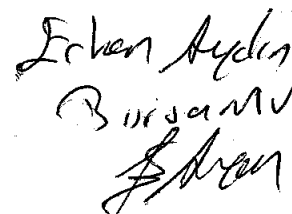 Erkan Aydın
Bursa MV